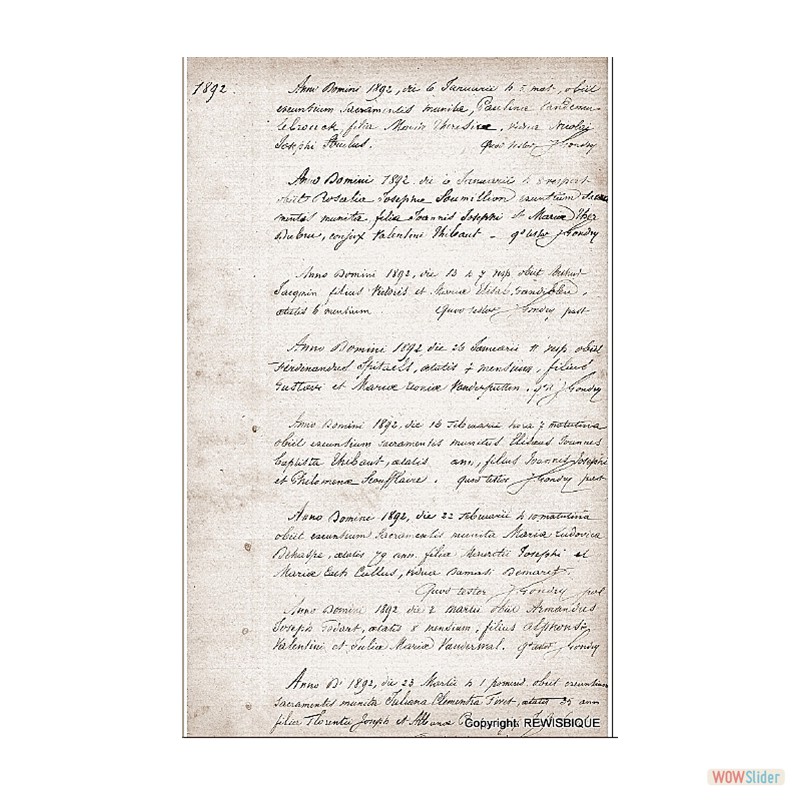 1892.
Anno Domini 1892, die 6 Januarii h 5 mat, obiit
exeuntium sacramentis munita, Paulina Vandemeu-
lebrouck filia Maria Theresiæ, vidua Nicolai
Josephi Paulus. Quod testor J Gondry
Anno Domini 1892 die 10 Januarii h 8 vespert
obiit Rosalia Josepha Soumillion exuntium sacra
mentis munita, filia Joannis Josephi et Mariæ Ther
Dubru, conjux Valentini Thibaut - qd testor J Gondry
Anno Domini 1892, die 13 h 7 vesp obiit
Jacquin filius et Mariæ Elisa
ætatis 6 mensium. Quod testor J Gondry past
Anno Domini 1892 die 26 Januarii 11 vesp obiit
Ferdenandus Spitaels, ætatis 7 mensium, filius
Gustavi et Mariæ Leoniæ Vanderputten. qd J Gondry
Anno Domini 1892, die 16 Februarii hora 7 matutina
obiit exeuntium sacramentis munitus Eliseus Joannes
Baptista Thibaut, ætatis ann, filius Joannis Josephi
et Philomenæ Soufflaire. Quod testor J Gondry past
Anno Domine 1892, die 22 Februarii h 10 matutina
obiit exeuntium sacramentis munita Maria Ludovica
Dehaspe, ætatis 79 ann. filia Josephi et
Mariæ Cath Cullus, vidua Damasi Demaret.
Quod testor J Gondry past
Anno Domini 1892 die 2 Martii obiit Armandus
Joseph Godart, ætatis 8 mensium, filius Alphonsi
Valentini et Julia Mariæ Vanderwal. qd testor J Gondry
Anno D 1892, die 23 Martii h 1 pomerid. obiit exeuntium
sacramentis munita Juliana Clementia Tiret, ætatis 35 ann
filia Florentii Joseph et Albanæ
Copyright: REWISBIQUE
WOWSlider